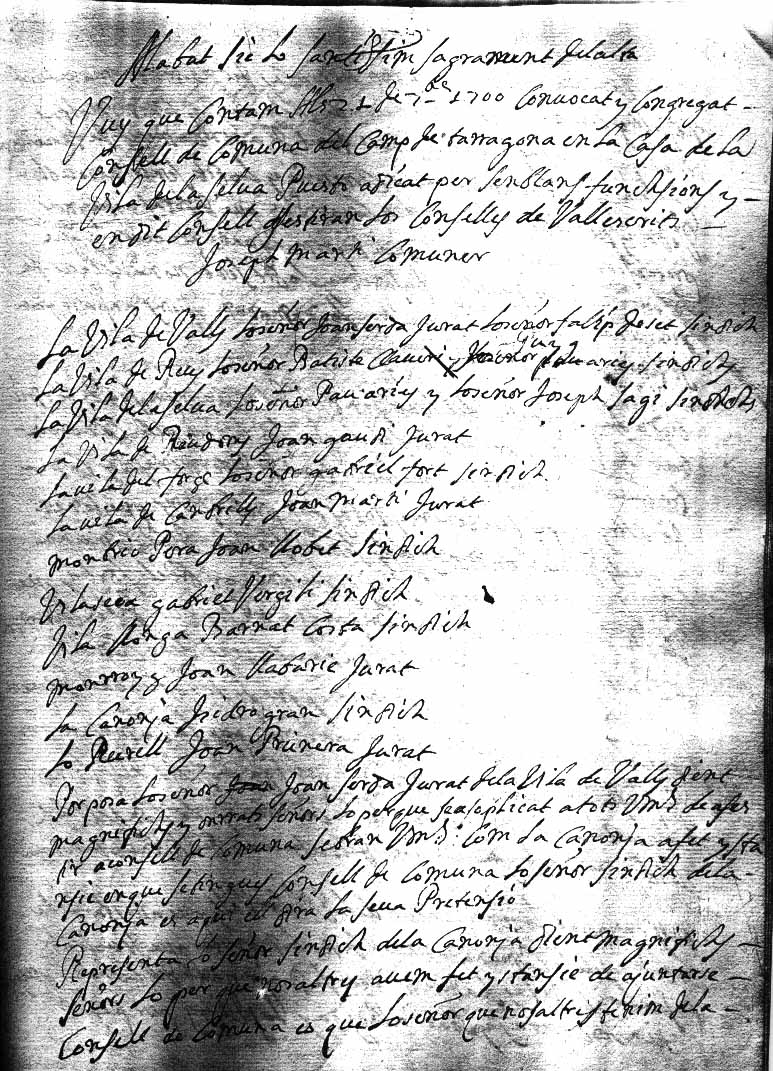 Alabat siè lo santissim sagrament del alta
Vuy que contam als 21 de 7bre 1700 convocat y congregat
Consell de Comuna del Camp de tarragona en la Casa de la
Vila de la Selva Puesto aficat per senblans funcsions y
en dit Consell asistiran los Conselles de Vall escrits
Joseph Marti Comuner
La Vila de Valls lo señor Joan Serda Jurat lo señor falip de set sindich
La Vila de Reus lo señor Batiste Claveri y lo señor sindichs
La Vila de la Selva lo señor Pau aries y lo señor Joseph Sagi Sindichs
La Vila de Riudoms Joan gaudi Jurat
La vila del forge lo señor gabriel fort sindich
La vila de Canbrills Joan Marti Jurat
monbrio Pera Joan llobet Sindich
Vilaseca gabriel Vergili Sindich
Vila llonga Barnat Costa Sindich
monrroyg Joan llabarie Jurat
la Canonja Isidro gran Sindich
lo Rurell Joan Prunera Jurat
Por posa lo señor Joan Joan Serda Jurat de la Vila de Valls dient
magnifichs y onrrats señors lo per que sea seplicat a tots Vms de
aconsell de Comuna seoran Vms com La Canonja a fet ysta
nsie en que se tingues Consell de Comuna lo señor Sindich de la
Canonja es aqui ell dira La seua Pretensio
Representa lo señor Sindich de la Canonja dient magnifichs
señors lo per que nosaltres avem fet ystansie de ajuntarse
Consell de Comuna es que lo señor que nosaltres tenim de la